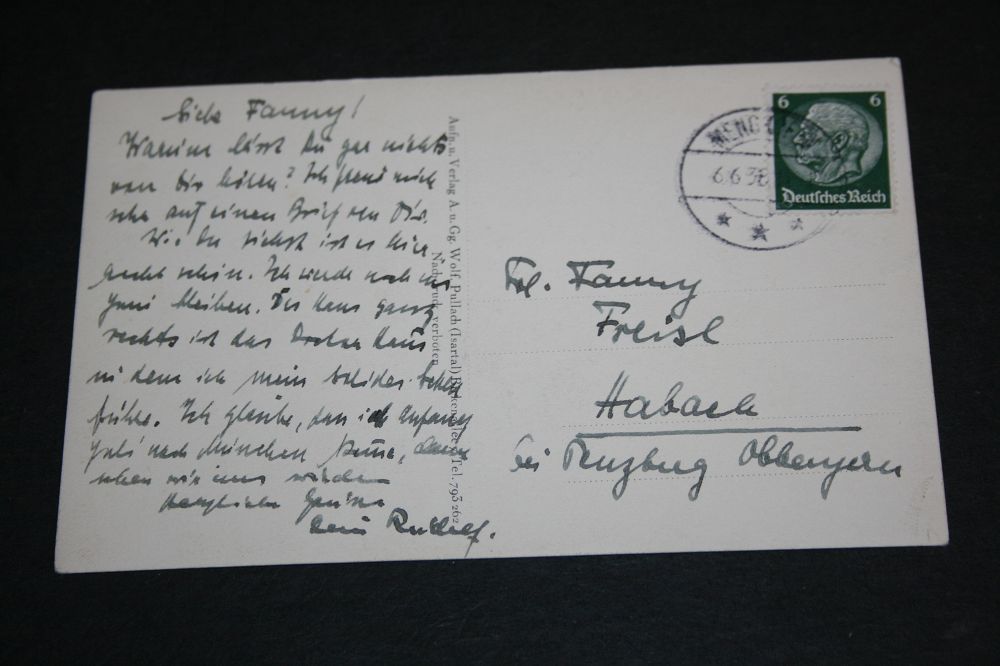 Liebe Fanny!
Warum lässt Du gar nichts
von Dir hören? Ich freue mich
sehr auf einen Brief von Dir.
Wie Du siehst ist es hier
recht schön. Ich werde noch im
Juni bleiben. Das Haus ganz
rechts ist das Haus
in dem ich mein
führe. Ich glaube, dass ich Anfang
Juli nach München komme, dann
sehen wir uns wieder
Herzlichen Grüsse
Dein Rudolf.
Aufn. u. Verlag A. u. Gg. Wolf, Pullach (Isartal) Tel. 793262
Nachdruck verboten
6 6
Deutsches Reich
6.6.38
Frl. Fanny
Freisl
Habach
bei Penzberg Obbayern